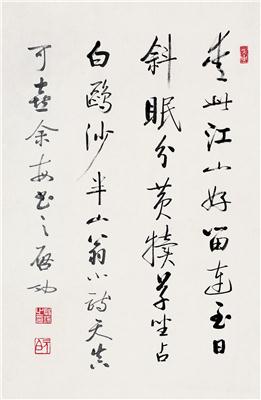 爱此江山好留连至日
斜眠分黄犊草坐占
白鸥沙半山翁小诗天真
可喜余每书之启功